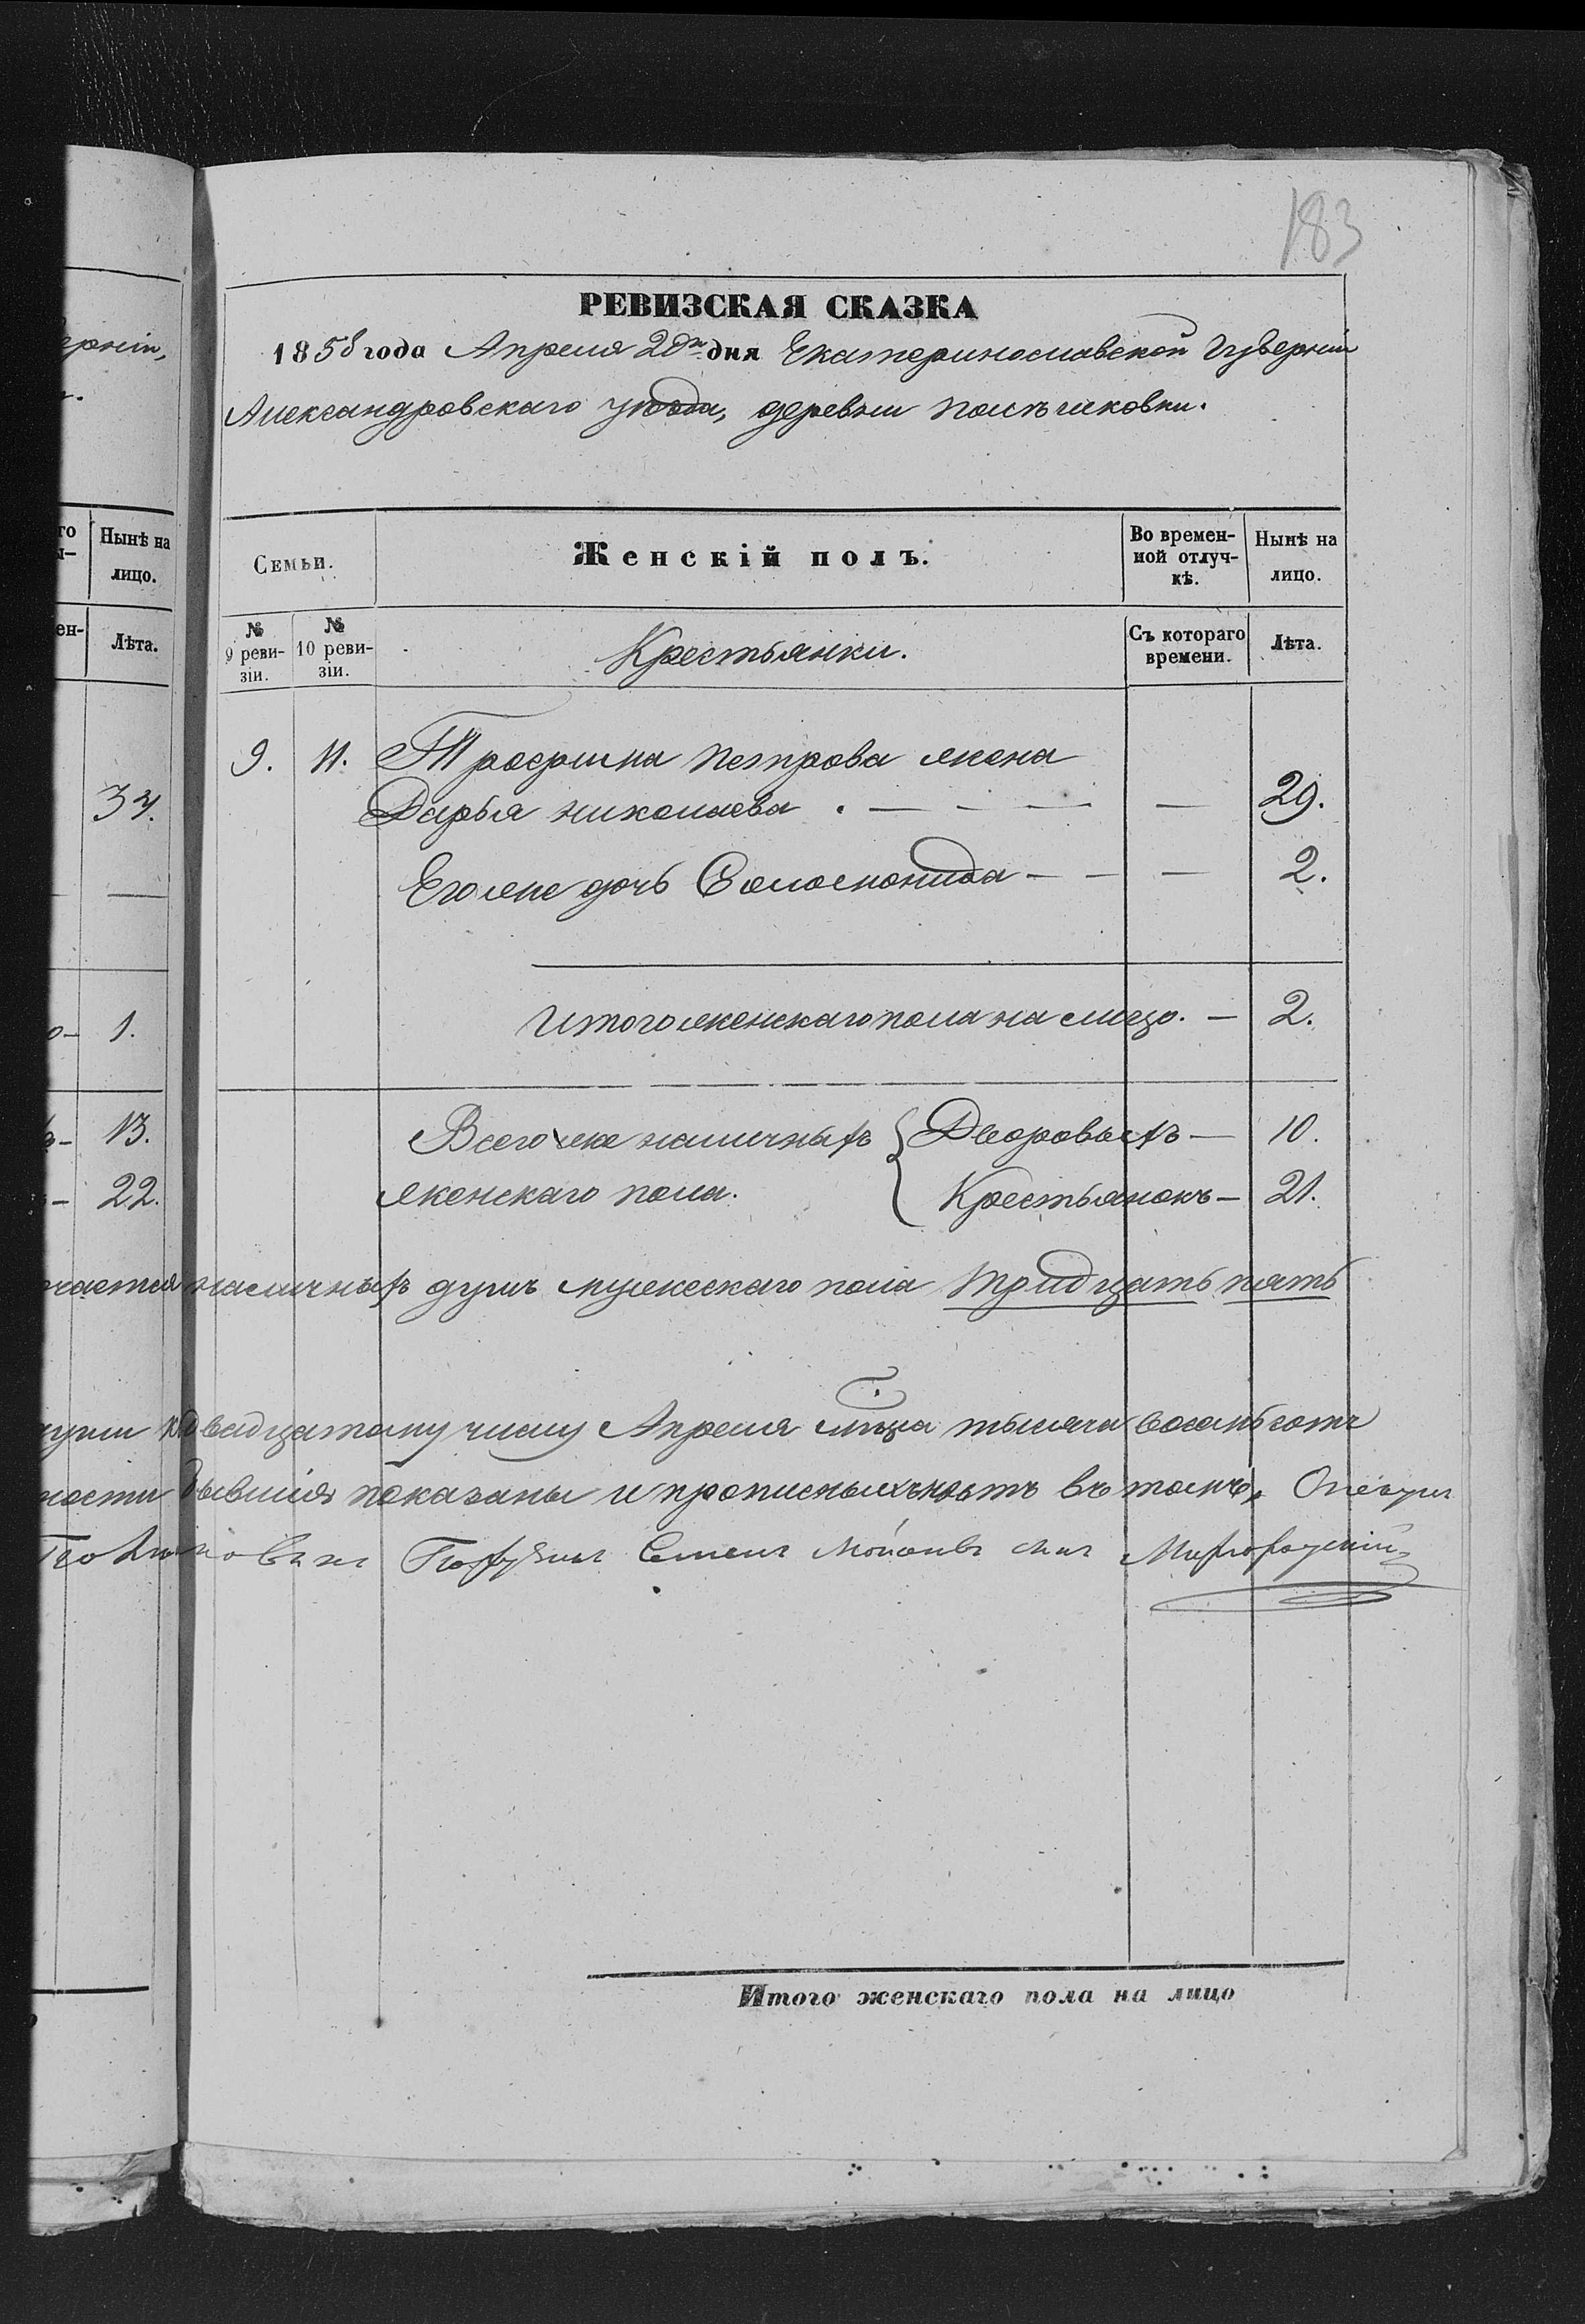 183
РЕВИЗСКАЯ СКАЗКА
1858 года Апреля 20го дня Екатеринославской Губерніи
Александровскаго уѣзда, деревни
ерніи,
го
Нынѣ на лицо.
ен-
Лѣта.
Семьи.
Женскій полъ.
Во времен-
ной отлуч-
кѣ.
Нынѣ на
лицо.
№
9 реви-
зіи.
№
10 реви-
зіи.
Крестьянки.
Съ котораго
времени.
Лѣта.
9. 11. Трофима Петрова жена
34. Дарья Николаева . — — — — 29.
Его же дочь Соломонида — — — 2.
1. Итого женскаго пола на лицо. — 2.
13. Всего же наличныхъ { Дворовыхъ — 10.
22. женскаго пола. Крестьянокъ — 21.
наличныхъ душъ мужескаго пола тридцать пять
двадцатому числу Апреля мѣца тысяча восемьсотъ
бывшія показаны и прописныхъ нѣтъ въ томъ, Опекунъ
Миргородскій
Итого женскаго пола на лицо